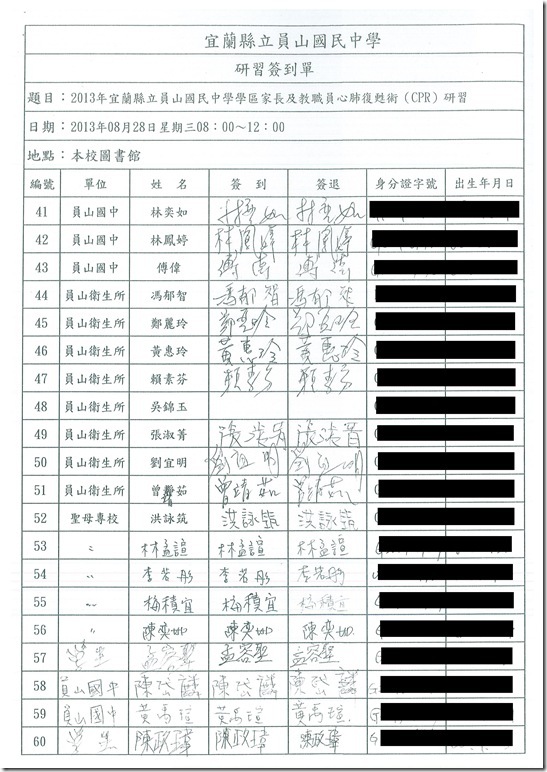 宜蘭縣立員山國民中學
研習簽到單
題目：2013年宜蘭縣立員山國民中學學區家長及教職員心肺復甦術（CPR）研習
日期：2013年08月28日星期三08：00～12：00
地點：本校圖書館
編號 單位 姓 名 簽 到 簽退 身分證字號 出生年月日
41 員山國中 林奕如 林奕如 林奕如
42 員山國中 林鳳婷 林鳳婷 林鳳婷
43 員山國中 傅偉 傅偉 傅偉
44 員山衛生所 馮郁智 馮郁智 馮郁智
45 員山衛生所 鄭麗玲 鄭麗玲 鄭麗玲
46 員山衛生所 黃惠玲 黃惠玲 黃惠玲
47 員山衛生所 賴素芬 賴素芬 賴素芬
48 員山衛生所 吳錦玉
49 員山衛生所 張淑菁 張淑菁 張淑菁
50 員山衛生所 劉宜明 劉宜明 劉宜明
51 員山衛生所 曾靖茹 曾靖茹 曾靖茹
52 聖母專校 洪詠筑 洪詠筑 洪詠筑
53 〃 林孟諠 林孟諠 林孟諠
54 〃 李若彤 李若彤 李若彤
55 〃 梅積宜 梅積宜 梅積宜
56 〃 陳奕如 陳奕如 陳奕如
57 學生 孟容聖 孟容聖 孟容聖
58 員山國中 陳岱麟 陳岱麟 陳岱麟
59 員山國中 黃禹瑄 黃禹瑄 黃禹瑄
60 學生 陳政瑋 陳政瑋 陳政瑋